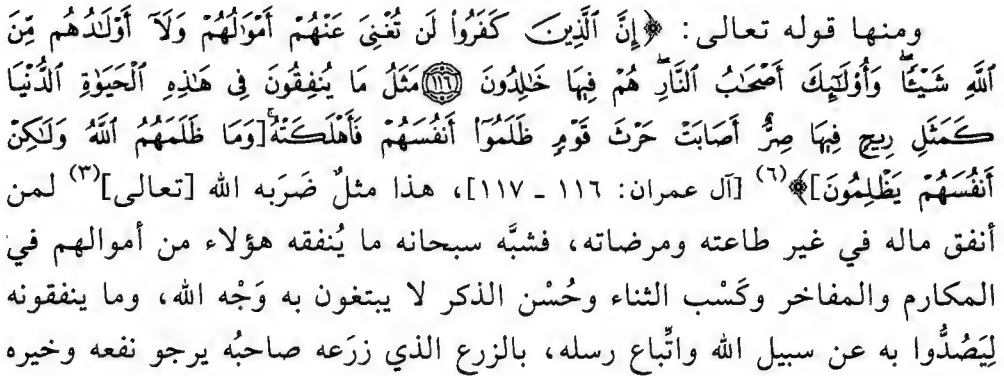 ومنها قوله تعالى: ﴿إِنَّ ٱلَّذِينَ كَفَرُوا۟ لَن تُغْنِىَ عَنْهُمْ أَمْوَٰلُهُمْ وَلَآ أَوْلَـٰدُهُم مِّنَ
ٱللَّهِ شَيْـًٔا وَأُو۟لَـٰٓئِكَ أَصْحَـٰبُ ٱلنَّارِ هُمْ فِيهَا خَـٰلِدُونَ ١١٦ مَثَلُ مَا يُنفِقُونَ فِى هَـٰذِهِ ٱلْحَيَوٰةِ ٱلدُّنْيَا
كَمَثَلِ رِيحٍ فِيهَا صِرٌّ أَصَابَتْ حَرْثَ قَوْمٍ ظَلَمُوٓا۟ أَنفُسَهُمْ فَأَهْلَكَتْهُ [وَمَا ظَلَمَهُمُ ٱللَّهُ وَلَـٰكِنْ
أَنفُسَهُمْ يَظْلِمُونَ]﴾(٦) [آل عمران: ١١٦ ـ ١١٧]، هذا مثلٌ ضَرَبه الله [تعالى](٣) لمن
أنفق ماله في غير طاعته ومرضاته، فشبَّه سبحانه ما يُنفقه هؤلاء من أموالهم في
المكارم والمفاخر وكَسْب الثناء وحُسْن الذكر لا يبتغون به وَجْه الله، وما ينفقونه
لِيَصُدُّوا به عن سبيل الله واتِّباع رسله، بالزرع الذي زرَعه صاحبُه يرجو نفعه وخيره